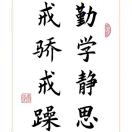 勤学静思
戒骄戒躁